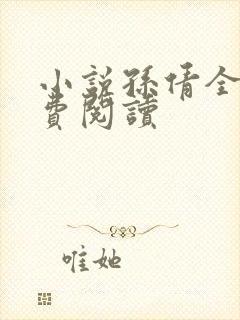 小說孫倩全
費閱讀
唯她